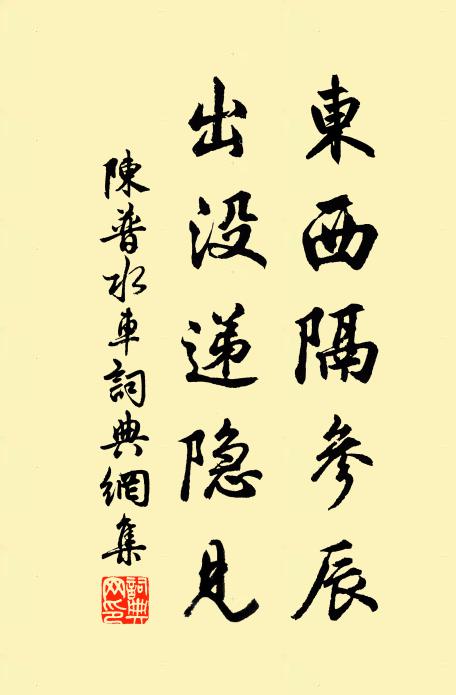 東西隔參辰
出没递隐見
陳普水車詞典網集
詞典网印